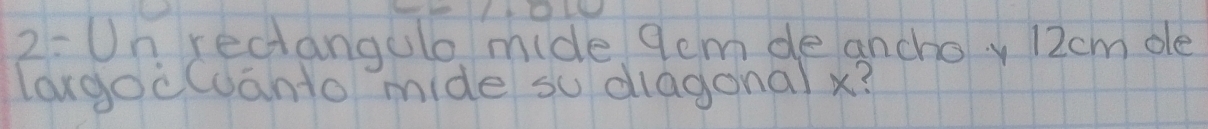 2- Un rectangulo mide 9cm de ancho y 12cm de
largo¿Cuánto mide su diagonal x?